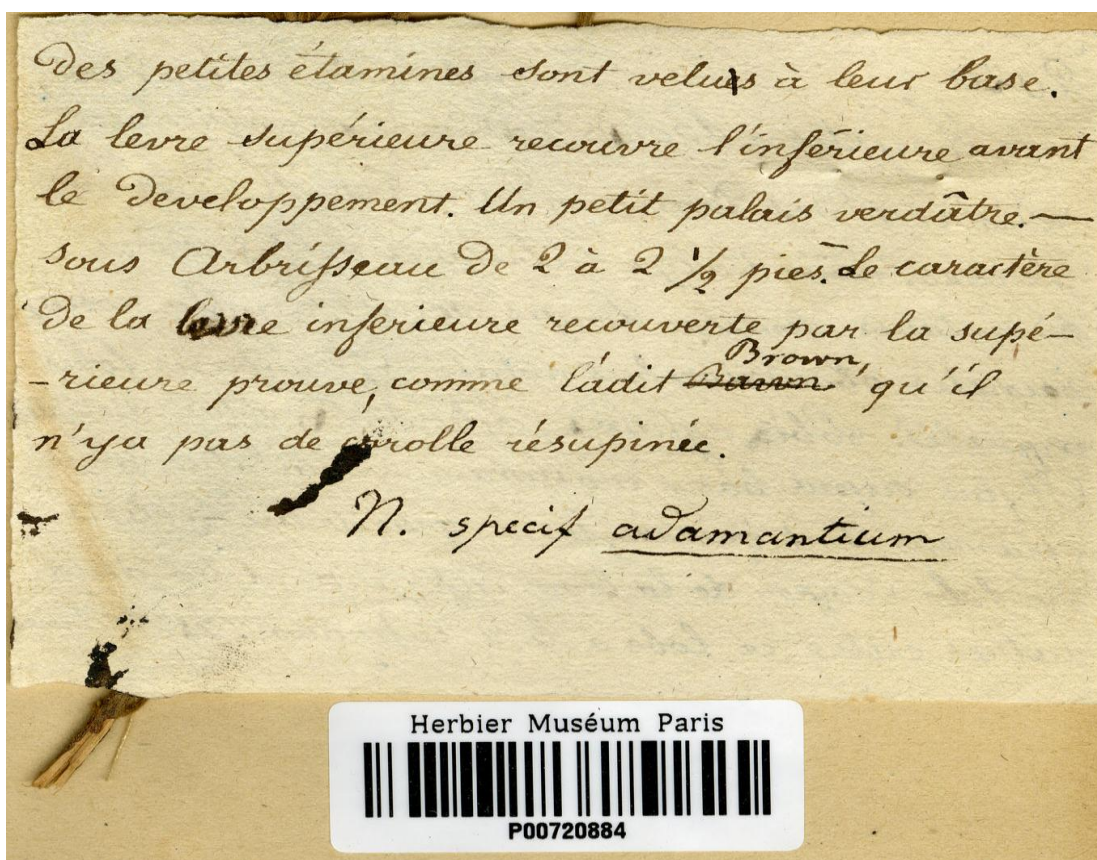 Des petites étamines sont velues à leur base.
La levre supérieure recouvre l'inférieure avant
le Developpement. Un petit palais verdâtre. —
sous Arbrisseau de 2 à 2 1/2 piés. Le caractère
De la levre inferieure recouverte par la supé-
-rieure prouve, comme l'adit Bawn Brown, qu'il
n'ya pas de corolle résupinée.
N. specif adamantium
Herbier Muséum Paris
P00720884